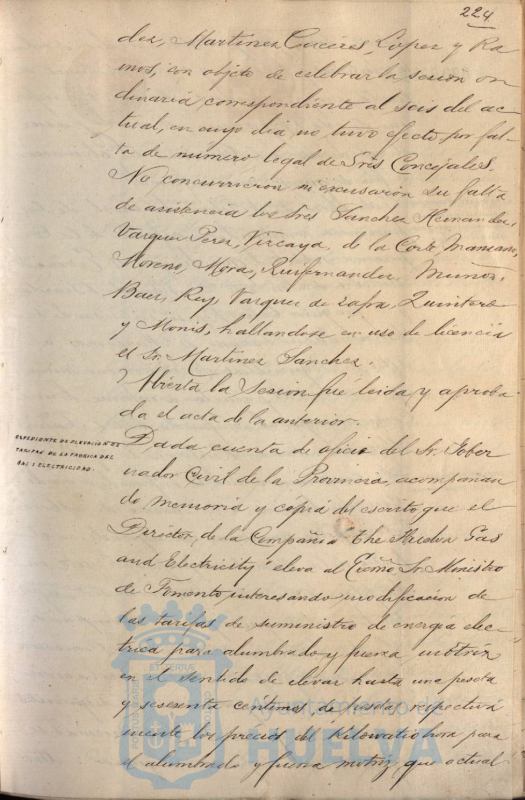 224
dez, Martinez Caceres, Lopez y Ra
mos, con objeto de celebrar la sesion or
dinaria correspondiente al seis del ac
tual, en cuyo dia no tuvo efecto por fal-
ta de numero legal de Sres Concejales.
No concurrieron ni excusaron su falta
de asistencia los Sres Sanchez Hernandez,
Vazquez Perez, Vizcaya, de la Corte, Manzano,
Moreno, Mora, Ruifernandez, Muñoz,
Baez, Rey, Vazquez de Zafra, Quintero
y Monis, hallandose en uso de licencia
el Sr. Martinez Sanchez.
Abierta la Sesion fué leida y aproba
da el acta de la anterior.
EXPEDIENTE DE ELEVACION DE
TARIFAS DE LA FABRICA DEL
GAS I ELECTRICIDAD.
Dada cuenta de oficio del Sr. Gober
nador Civil de la Provincia, acompañan
do memoria y copia del escrito que el
Director de la Compañia "The Huelva Gas
and Electricity" eleva al Excmo Sr. Ministro
de Fomento, interesando modificacion de
las tarifas de suministro de energia elec
trica para alumbrado y fuerza motriz
en el sentido de elevar hasta una peseta
y sesenta centimos de peseta respectiva
mente los precios del Kilowatio hora para
el alumbrado y fuerza motriz que actual
Ayuntamiento de
HUELVA